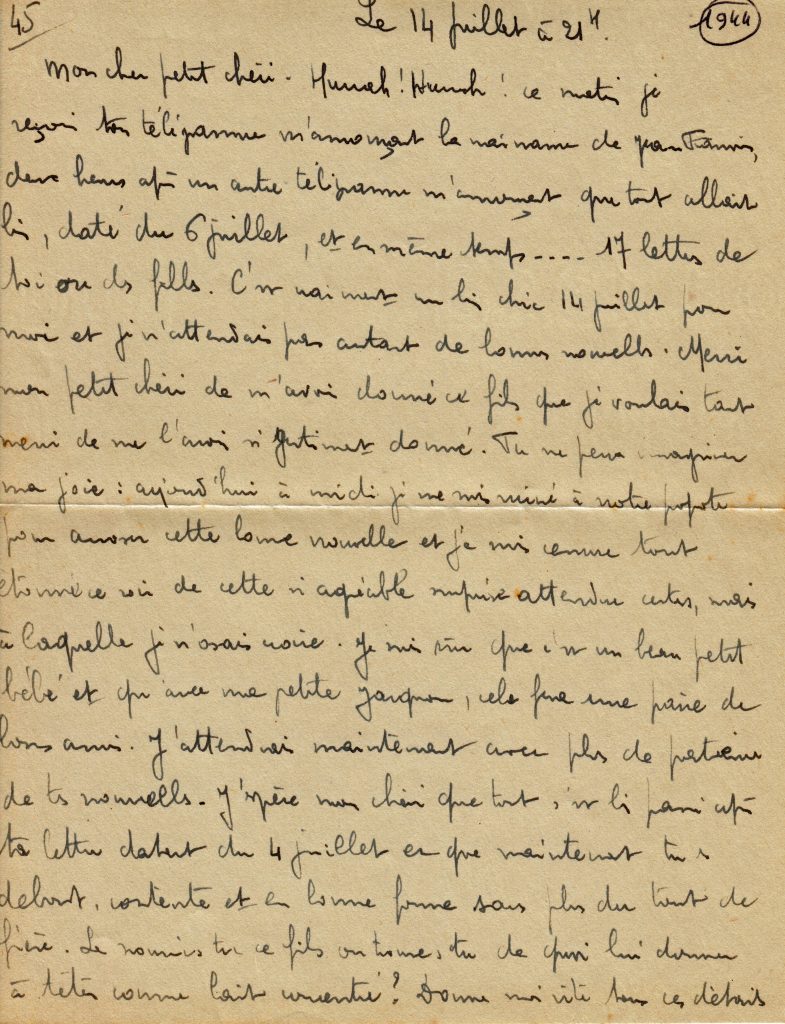 45
Le 14 juillet à 21H.
1944
Mon cher petit chéri. Hurrah! Hurrah! ce matin je
reçois ton télégramme m'annonçant la naissance de Jean Francis,
deux heures après un autre télégramme m'annonçant que tout allait
bien, daté du 6 juillet, et en même temps.... 17 lettres de
toi ou des filles. C'est vraiment un bien chic 14 juillet pour
moi et je n'attendais pas autant de bonnes nouvelles. Merci
mon petit chéri de m'avoir donné ce fils que je voulais tant
merci de me l'avoir si gentiment donné. Tu ne peux imaginer
ma joie: aujourd'hui à midi je me suis ruiné à notre popote
pour arroser cette bonne nouvelle et je suis encore tout
étonné ce soir de cette si agréable surprise attendue certes, mais
à laquelle je n'osais croire. Je suis sûr que c'est un beau petit
bébé et qu'avec ma petite, cela fera une paire de
bons amis. J'attendrai maintenant avec plus de patience
de tes nouvelles. J'espère mon chéri que tout s'est bien passé après
ta lettre datant du 4 juillet et que maintenant tu es
debout, contente et en bonne forme sans plus du tout de
fièvre. Le nourris tu ce fils ou trouves tu de quoi lui donner
à têter comme lait concentré? Donne moi vite tous ces détails